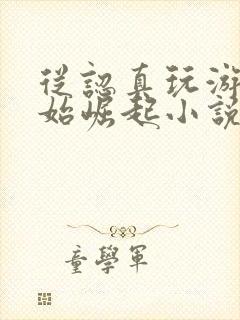 從認真玩游
始崛起小說
童學軍